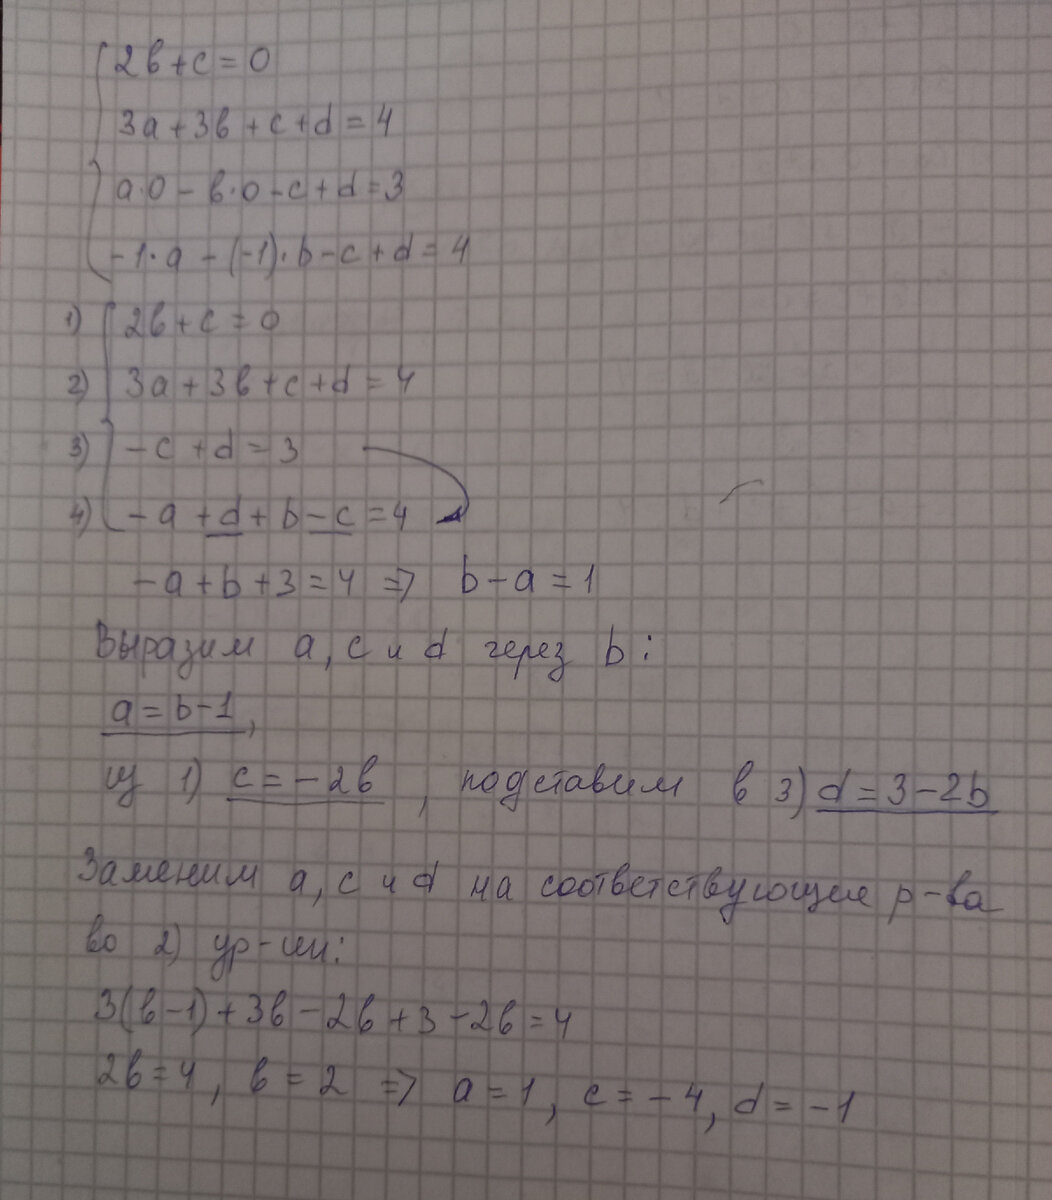 2b+c=0
3a+3b+c+d=4
a·0-b·0-c+d=3
-1·a-(-1)·b-c+d=4
1) 2b+c=0
2) 3a+3b+c+d=4
3) -c+d=3
4) -a+d+b-c=4
-a+b+3=4 => b-a=1
Выразим a, c и d через b:
a=b-1,
из 1) c=-2b, подставим в 3) d=3-2b
Заменим a, c и d на соответствующие р-ва
во 2) ур-ии:
3(b-1)+3b-2b+3-2b=4
2b=4, b=2 => a=1, c=-4, d=-1